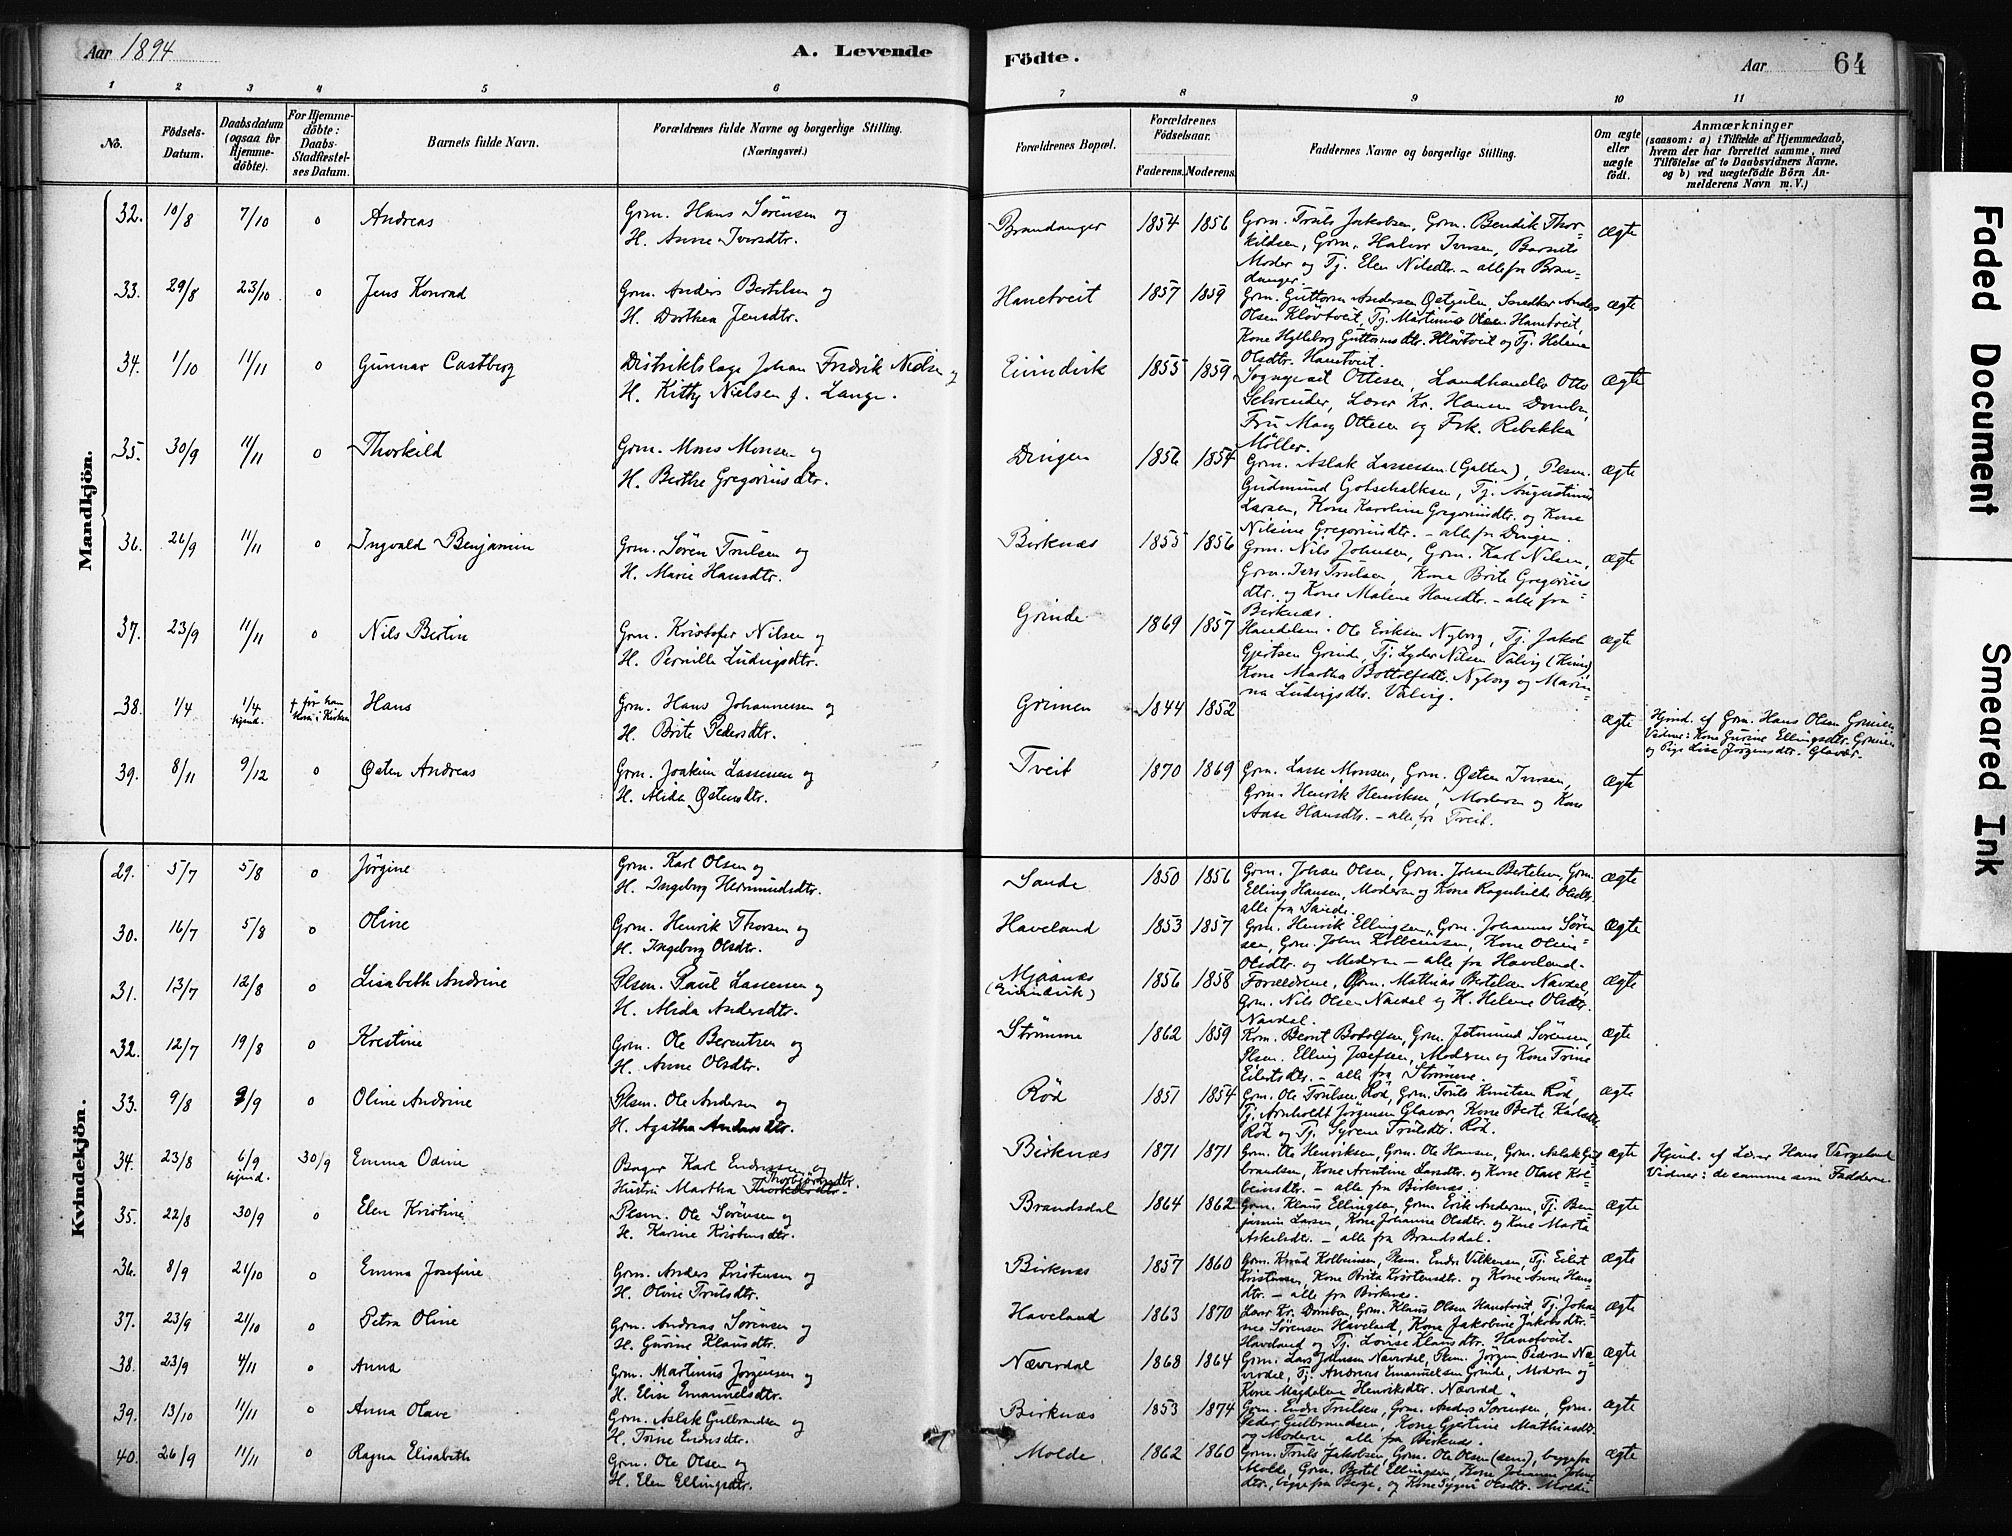 Aar 1894
A. Levende
Födte.
Aar
64
1 2 3 4 5 6 7 8 9 10 11
No.
Födsels-Datum.
Daabsdatum (ogsaa for Hjemme-döbte).
For Hjemme-döbte: Daabs-Stadfæstel-ses Datum.
Barnets fulde Navn.
Forældrenes fulde Navne og borgerlige Stilling.
(Næringsvei.)
Forældrenes Bopæl.
Forældrenes Födselsaar.
Faderens. Moderens.
Faddernes Navne og borgerlige Stilling.
Om ægte eller uægte födt.
Anmærkninger
(saasom: a) i Tilfælde af Hjemmedaab, hvem der har forrettet samme, med Tilföielse af to Daabsvidners Navne, og b) ved uægtefödte Börn An-melderens Navn m. V.)
Mandkjön.
32. 10/8 7/10 0 Andreas
Grm. Hans Sørensen og
H. Anne Iversdtr.
Brandanger 1854 1856
Grm. Truls Jakobsen, Grm. Bendik Thor-
kildsen, Grm. Halvor Iversen, Barnets
Moder og Tj. Elen Nilsdtr. – alle fra Bran-
danger.
ægte
33. 29/8 23/10 0 Jens Konrad
Grm. Anders Bertelsen og
H. Dorthea Jensdtr.
Hanetveit 1857 1859
Grm. Guttorm Andersen Østgulen, Snedker Anders
Olsen Kløvtveit, Tj. Martinus Olsen Hanetveit,
Kone Hylleborg Guttormsdtr. Kløvtveit og Tj. Helena
Olsdtr. Hanetveit.
ægte
34. 1/10 11/11 0 Gunnar Castberg
Distriktslæge Johan Fredrik Nielsen og
H. Kitty Nielsen f. Lange.
Eivindvik 1855 1859
Sogneprest Ottesen, Landhandler Otto
Schreuder, Lærer Kr. Hansen Domben,
Fru Mary Ottesen og Frk. Rebekka
Møller.
ægte
35. 30/9 11/11 0 Thorkild
Grm. Mons Monsen og
H. Berthe Gregoriusdtr.
Dingen 1856 1854
Grm. Aslak Lassessen (Galten), Plsm.
Gudmund Gotschalksen, Tj. Augustinus
Larsen, Kone Karoline Gregoriusdtr. og Kone
Nilsine Gregoriusdtr. – alle fra Dingen.
ægte
36. 26/9 11/11 0 Ingvald Benjamin
Grm. Søren Trulsen og
H. Marie Hansdtr.
Birknæs 1855 1856
Grm. Nils Johnsen, Grm. Karl Nilsen,
Grm. Iver Trulsen, Kone Brite Gregorius-
dtr. og Kone Malene Hansdtr. – alle fra
Birknæs.
ægte
37. 23/9 11/11 0 Nils Bertin
Grm. Kristofer Nilsen og
H. Pernille Ludvigsdtr.
Grinde 1869 1857
Handelsm. Ole Eriksen Nyborg, Tj. Jakob
Gjertsen Grinde, Tj. Lyder Nilsen Valvig (Kinn),
Kone Martha Bottolfsdtr. Nyborg og Mari-
na Ludvigsdtr. Valvig.
ægte
38. 1/4 1/4 hjemd. † før han kom i Kirken Hans
Grm. Hans Johannessen og
H. Brite Pedersdtr.
Grimen 1844 1852
ægte
Hjemd. af Grm. Hans Olsen Grimen
Vidner: Kone Gurine Ellingsdtr. Grimen
og Pige Lise Jørgensdtr. Glavær.
39. 8/11 9/12 0 Østen Andreas
Grm. Joakim Lassesen og
H. Alida Østensdtr.
Tveit 1870 1869
Grm. Lasse Monsen, Grm. Østen Iversen,
Grm. Henrik Henriksen, Moderen og Kone
Aase Hansdtr. – alle fra Tveit.
ægte
Kvindekjön.
29. 5/7 5/8 0 Jørgine
Grm. Karl Olsen og
H. Ingeborg Hermundsdtr.
Sande 1850 1856
Grm. Johan Olsen, Grm. Johan Bertelsen, Grm.
Elling Hansen, Moderen og Kone Ragnhilde Olsdtr.
alle fra Sande.
ægte
30. 16/7 5/8 0 Oline
Grm. Henrik Thorsen og
H. Ingeborg Olsdtr.
Haveland 1853 1857
Grm. Henrik Ellingsen, Grm. Johannes Søren-
sen, Grm. John Kolbeinsen, Kone Oline
Olsdtr. og Moderen – alle fra Haveland.
ægte
31. 13/7 12/8 0 Lisabeth Andrine
Plsm. Paul Lassesen og
H. Alida Andersdtr.
Mjaanæs
(Eivindvik) 1856 1858
Forældrene, Grm. Mathias Bertelsen Navdal,
Grm. Nils Olsen Navdal og H. Helene Olsdtr.
Navdal.
ægte
32. 12/7 19/8 0 Kristine
Grm. Ole Berentsen og
H. Anne Olsdtr.
Strømme 1862 1859
Krm. Bernt Botolfsen, Grm. Jetmund Sørensen,
Plsm. Elling Josefsen, Moderen og Kone Trine
Eilertsdtr. – alle fra Strømme.
ægte
33. 9/8 9/9 0 Oline Andrine
Plsm. Ole Andersen og
H. Agatha Andersdtr.
Röd 1851 1854
Grm. Ole Trulsen Röd, Grm. Truls Knutsen Röd,
Tj. Arnholdt Jørgensen Glavær, Kone Berte Karlsdtr.
Röd og Tj. Syrene Trulsdtr. Röd.
ægte
34. 23/8 6/9 hjemd. 30/9 Emma Odine
Bager Karl Endressen og
Hustru Martha Thorbjørnsdtr.
Birknæs 1871 1871
Grm. Ole Henriksen, Grm. Ole Hansen, Grm. Aslak Gul-
brandsen, Kone Arentine Larsdtr. og Kone Olave Kol-
beinsdtr. – alle fra Birknæs.
ægte
Hjemd. af Lærer Hans Vergeland
Vidner: de samme som Faddere
35. 22/8 30/9 0 Elen Kristine
Plsm. Ole Sørensen og
H. Karine Kristensdtr.
Brandsdal 1864 1862
Grm. Klaus Ellingsen, Grm. Erik Andersen, Tj. Ben-
jamin Larsen, Kone Johanne Olsdtr. og Kone Marta
Askelsdtr. – alle fra Brandsdal.
ægte
36. 8/9 21/10 0 Emma Josefine
Grm. Anders Kristensen og
H. Oline Trulsdtr.
Birknæs 1857 1860
Grm. Knud Kolbeinsen, Plsm. Endre Vilkensen, Tj. Eilert
Kristensen, Kone Brita Kristensdtr. og Kone Anne Hans-
dtr. – alle fra Birknæs.
ægte
37. 23/9 21/10 0 Petra Oline
Grm. Andreas Sørensen og
H. Gurine Klausdtr.
Haveland 1863 1870
Lærer Kr. Domben, Grm. Klaus Olsen Hanetveit, Tj. Johan-
nes Sørensen Haveland, Kone Jakobine Jakobsdtr.
Haveland og Tj. Lovise Klausdtr. Hanetveit.
ægte
38. 23/9 4/11 0 Anna
Grm. Martinus Jørgensen og
H. Elise Emanuelsdtr.
Næverdal 1868 1864
Grm. Lars Johnsen Næverdal, Plsm. Jörgen Pedersen Næ-
verdal, Tj. Andreas Emanuelsen Grinde, Moderen og
Kone Magdalene Henriksdtr. Næverdal.
ægte
39. 13/10 11/11 0 Anna Olave
Grm. Aslak Gulbrandsen og
H. Trine Endresdtr.
Birknæs 1853 1874
Grm. Endre Trulsen, Grm. Anders Sørensen, Grm.
Peder Gulbrandsen, Kone Gjertine Mathiasdtr.
og Moderen alle fra Birknæs.
ægte
40. 26/9 11/11 0 Ragna Elisabeth
Grm. Ole Olsen og
H. Elen Ellingsdtr.
Molde 1862 1860
Grm. Truls Jakobsen, Grm. Ole Olsen (sen.), begge fra
Molde, Grm. Bertel Ellingsen, Kone Johanne Johns-
dtr., begge fra Berge, og Kone Sygni Olsdtr. Molde
ægte
Faded Document
Smeared Ink